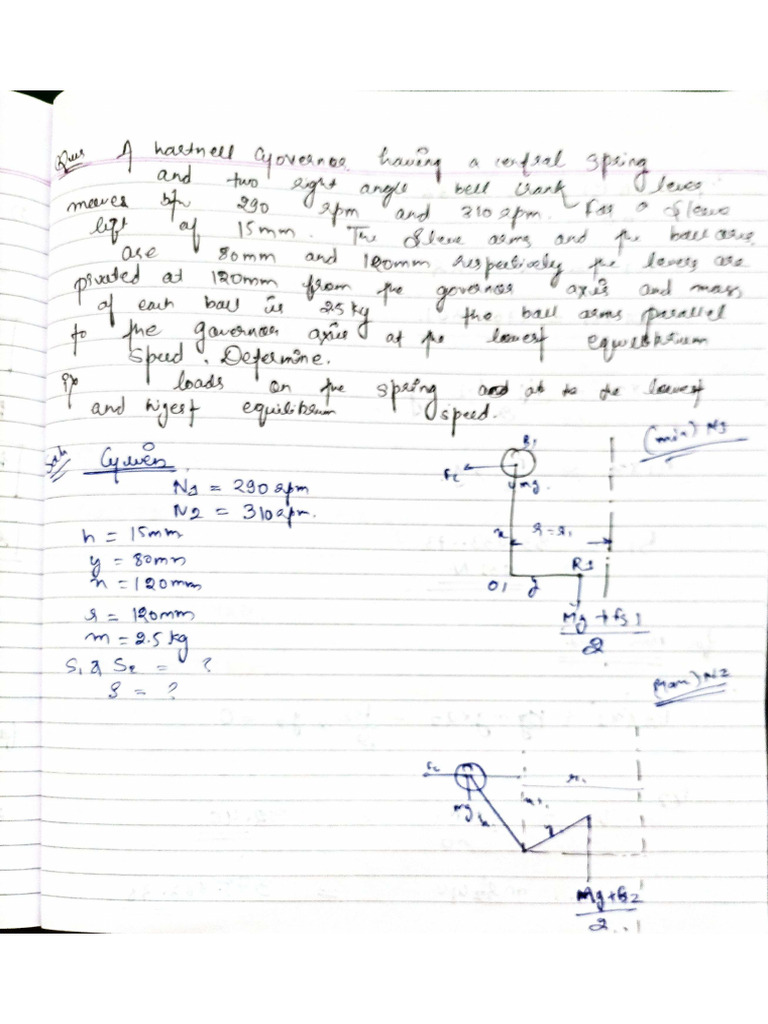 Ques A hartnell Governor having a central spring
and two right angle bell crank lever
moves b/w 290 rpm and 310 rpm. For a sleeve
lift of 15mm. The sleeve arms and the ball arms
are 80mm and 120mm respectively the levers are
pivoted at 120mm from the governor axis and mass
of each ball is 2.5 kg the ball arms parallel
to the governor axis at the lowest equilibrium
speed. Determine.
loads on the spring and at to the lowest
and higest equilibrium speed.
Soln Given
N1 = 290 rpm
N2 = 310 rpm.
h = 15mm
y = 80mm
x = 120mm
r = 120mm
m = 2.5 kg
S1 & S2 = ?
S = ?
(min) N1
B1
Fc
mg
x
r = r1
O1
y
Mg + Fs1
2
(Max) N2
Fc
mg
x
r1
y
Mg + Fs2
2